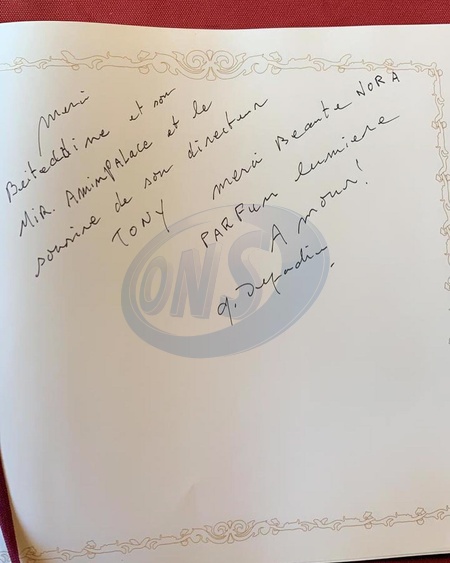 Merci
Beiteddine et son
MiR. AminpaLace et le
sourire de son directeur
TONY merci Beaute NORA
PARFum lumiere
Amour!
g. Depardieu
ONS